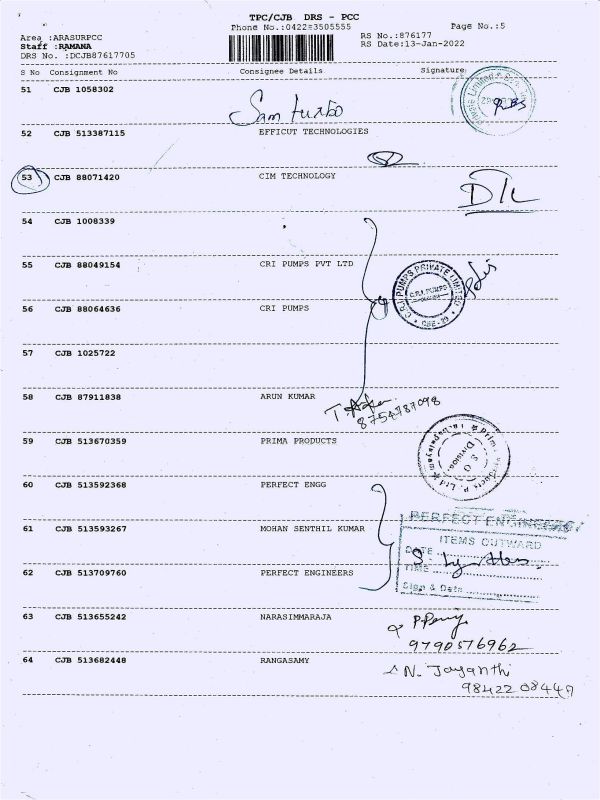 TPC/CJB DRS - PCC
Phone No.:0422=3505555
Page No.:5
Area :ARASURPCC
Staff :RAMANA
DRS No. :DCJB87617705
RS No.:876177
RS Date:13-Jan-2022
S No Consignment No Consignee Details Signature
51 CJB 1058302
Sam turbo
52 CJB 513387115 EFFICUT TECHNOLOGIES
53 CJB 88071420 CIM TECHNOLOGY
54 CJB 1008339
55 CJB 88049154 CRI PUMPS PVT LTD
C.R.I PUMPS PRIVATE LIMITED
C.R.I. PUMPS
56 CJB 88064636 CRI PUMPS
57 CJB 1025722
58 CJB 87911838 ARUN KUMAR
8754787098
59 CJB 513670359 PRIMA PRODUCTS
60 CJB 513592368 PERFECT ENGG
PERFECT ENGINEERS
61 CJB 513593267 MOHAN SENTHIL KUMAR
ITEMS OUTWARD
DATE
TIME
62 CJB 513709760 PERFECT ENGINEERS
Sign & Date
63 CJB 513655242 NARASIMMARAJA
9790576962
64 CJB 513682448 RANGASAMY
N. Jayanthi
9842208447